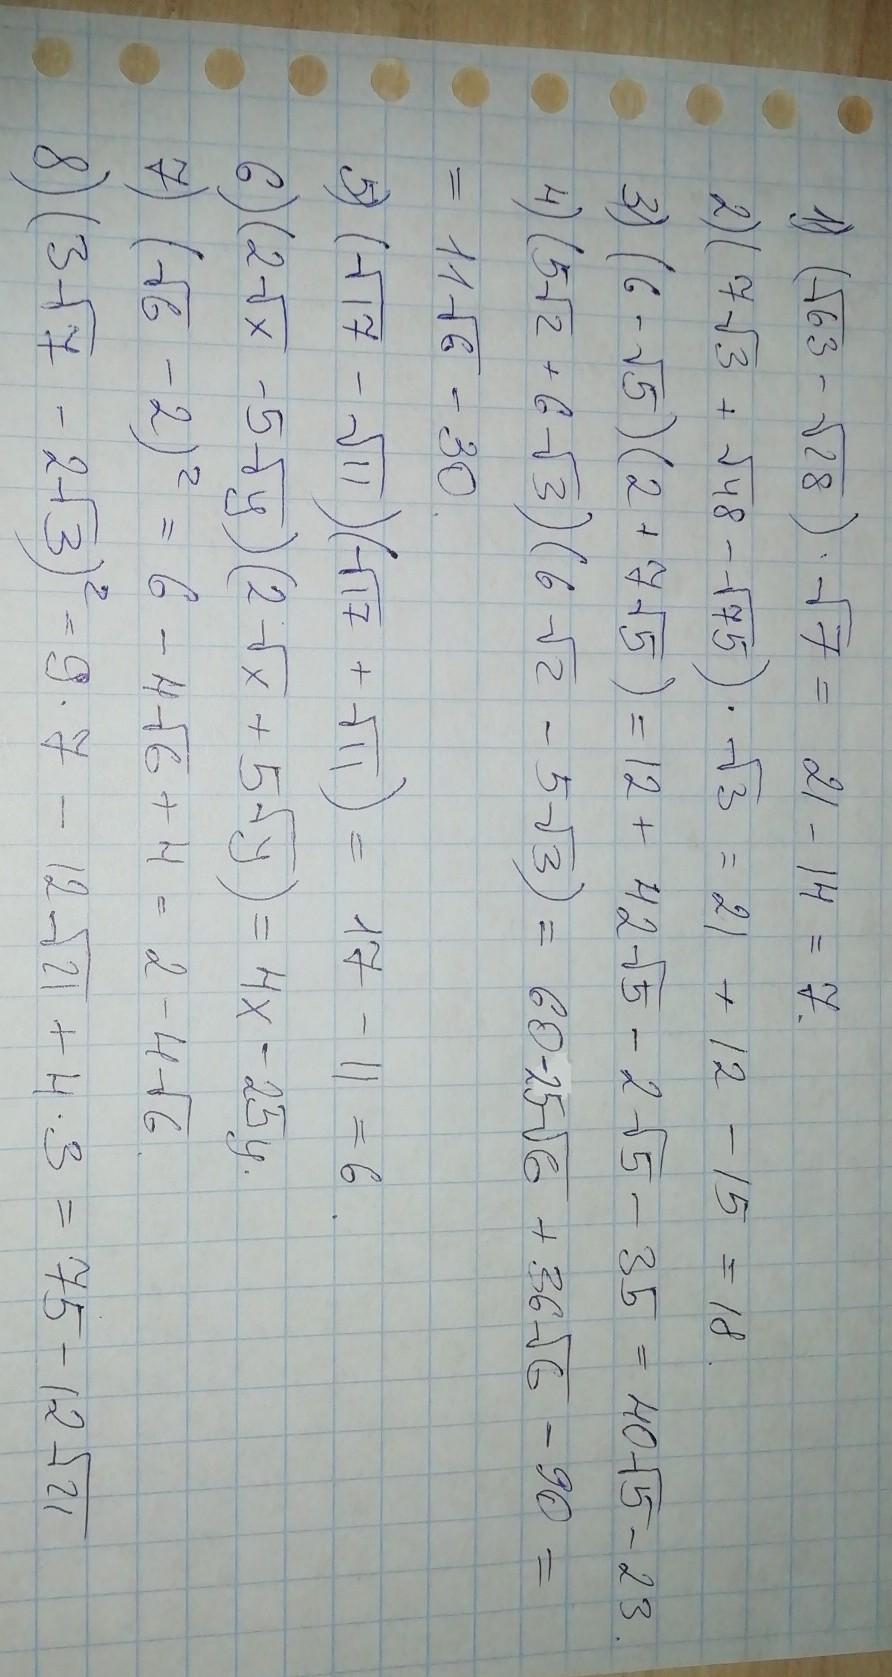 1) (√63 - √28) · √7 = 21 - 14 = 7.
2) (7√3 + √48 - √75) · √3 = 21 + 12 - 15 = 18.
3) (6 - √5)(2 + 7√5) = 12 + 42√5 - 2√5 - 35 = 40√5 - 23.
4) (5√2 + 6√3)(6√2 - 5√3) = 60 - 25√6 + 36√6 - 90 =
= 11√6 - 30.
5) (√17 - √11)(√17 + √11) = 17 - 11 = 6.
6) (2√x - 5√y)(2√x + 5√y) = 4x - 25y.
7) (√6 - 2)² = 6 - 4√6 + 4 = 2 - 4√6.
8) (3√7 - 2√3)² = 9·7 - 12√21 + 4·3 = 75 - 12√21